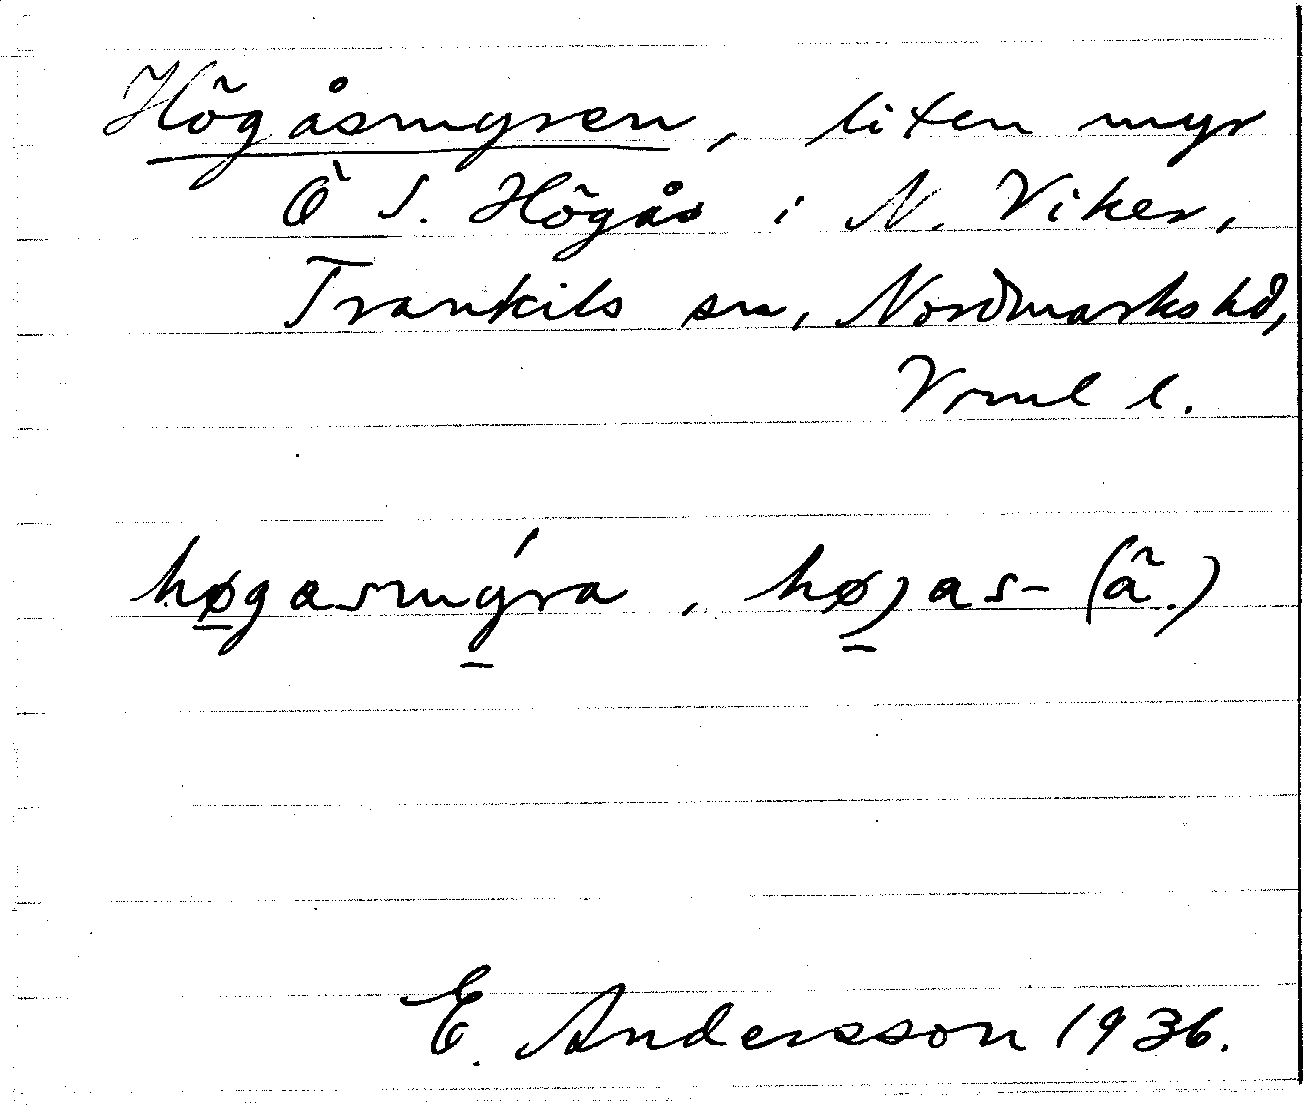 Högåsmyren, liten myr
Ö S. Högås i N. Viker,
Trankils sn, Nordmarks hd,
Vrml l.
høgasmy̍ra, høgas- (ä.)
E. Andersson 1936.